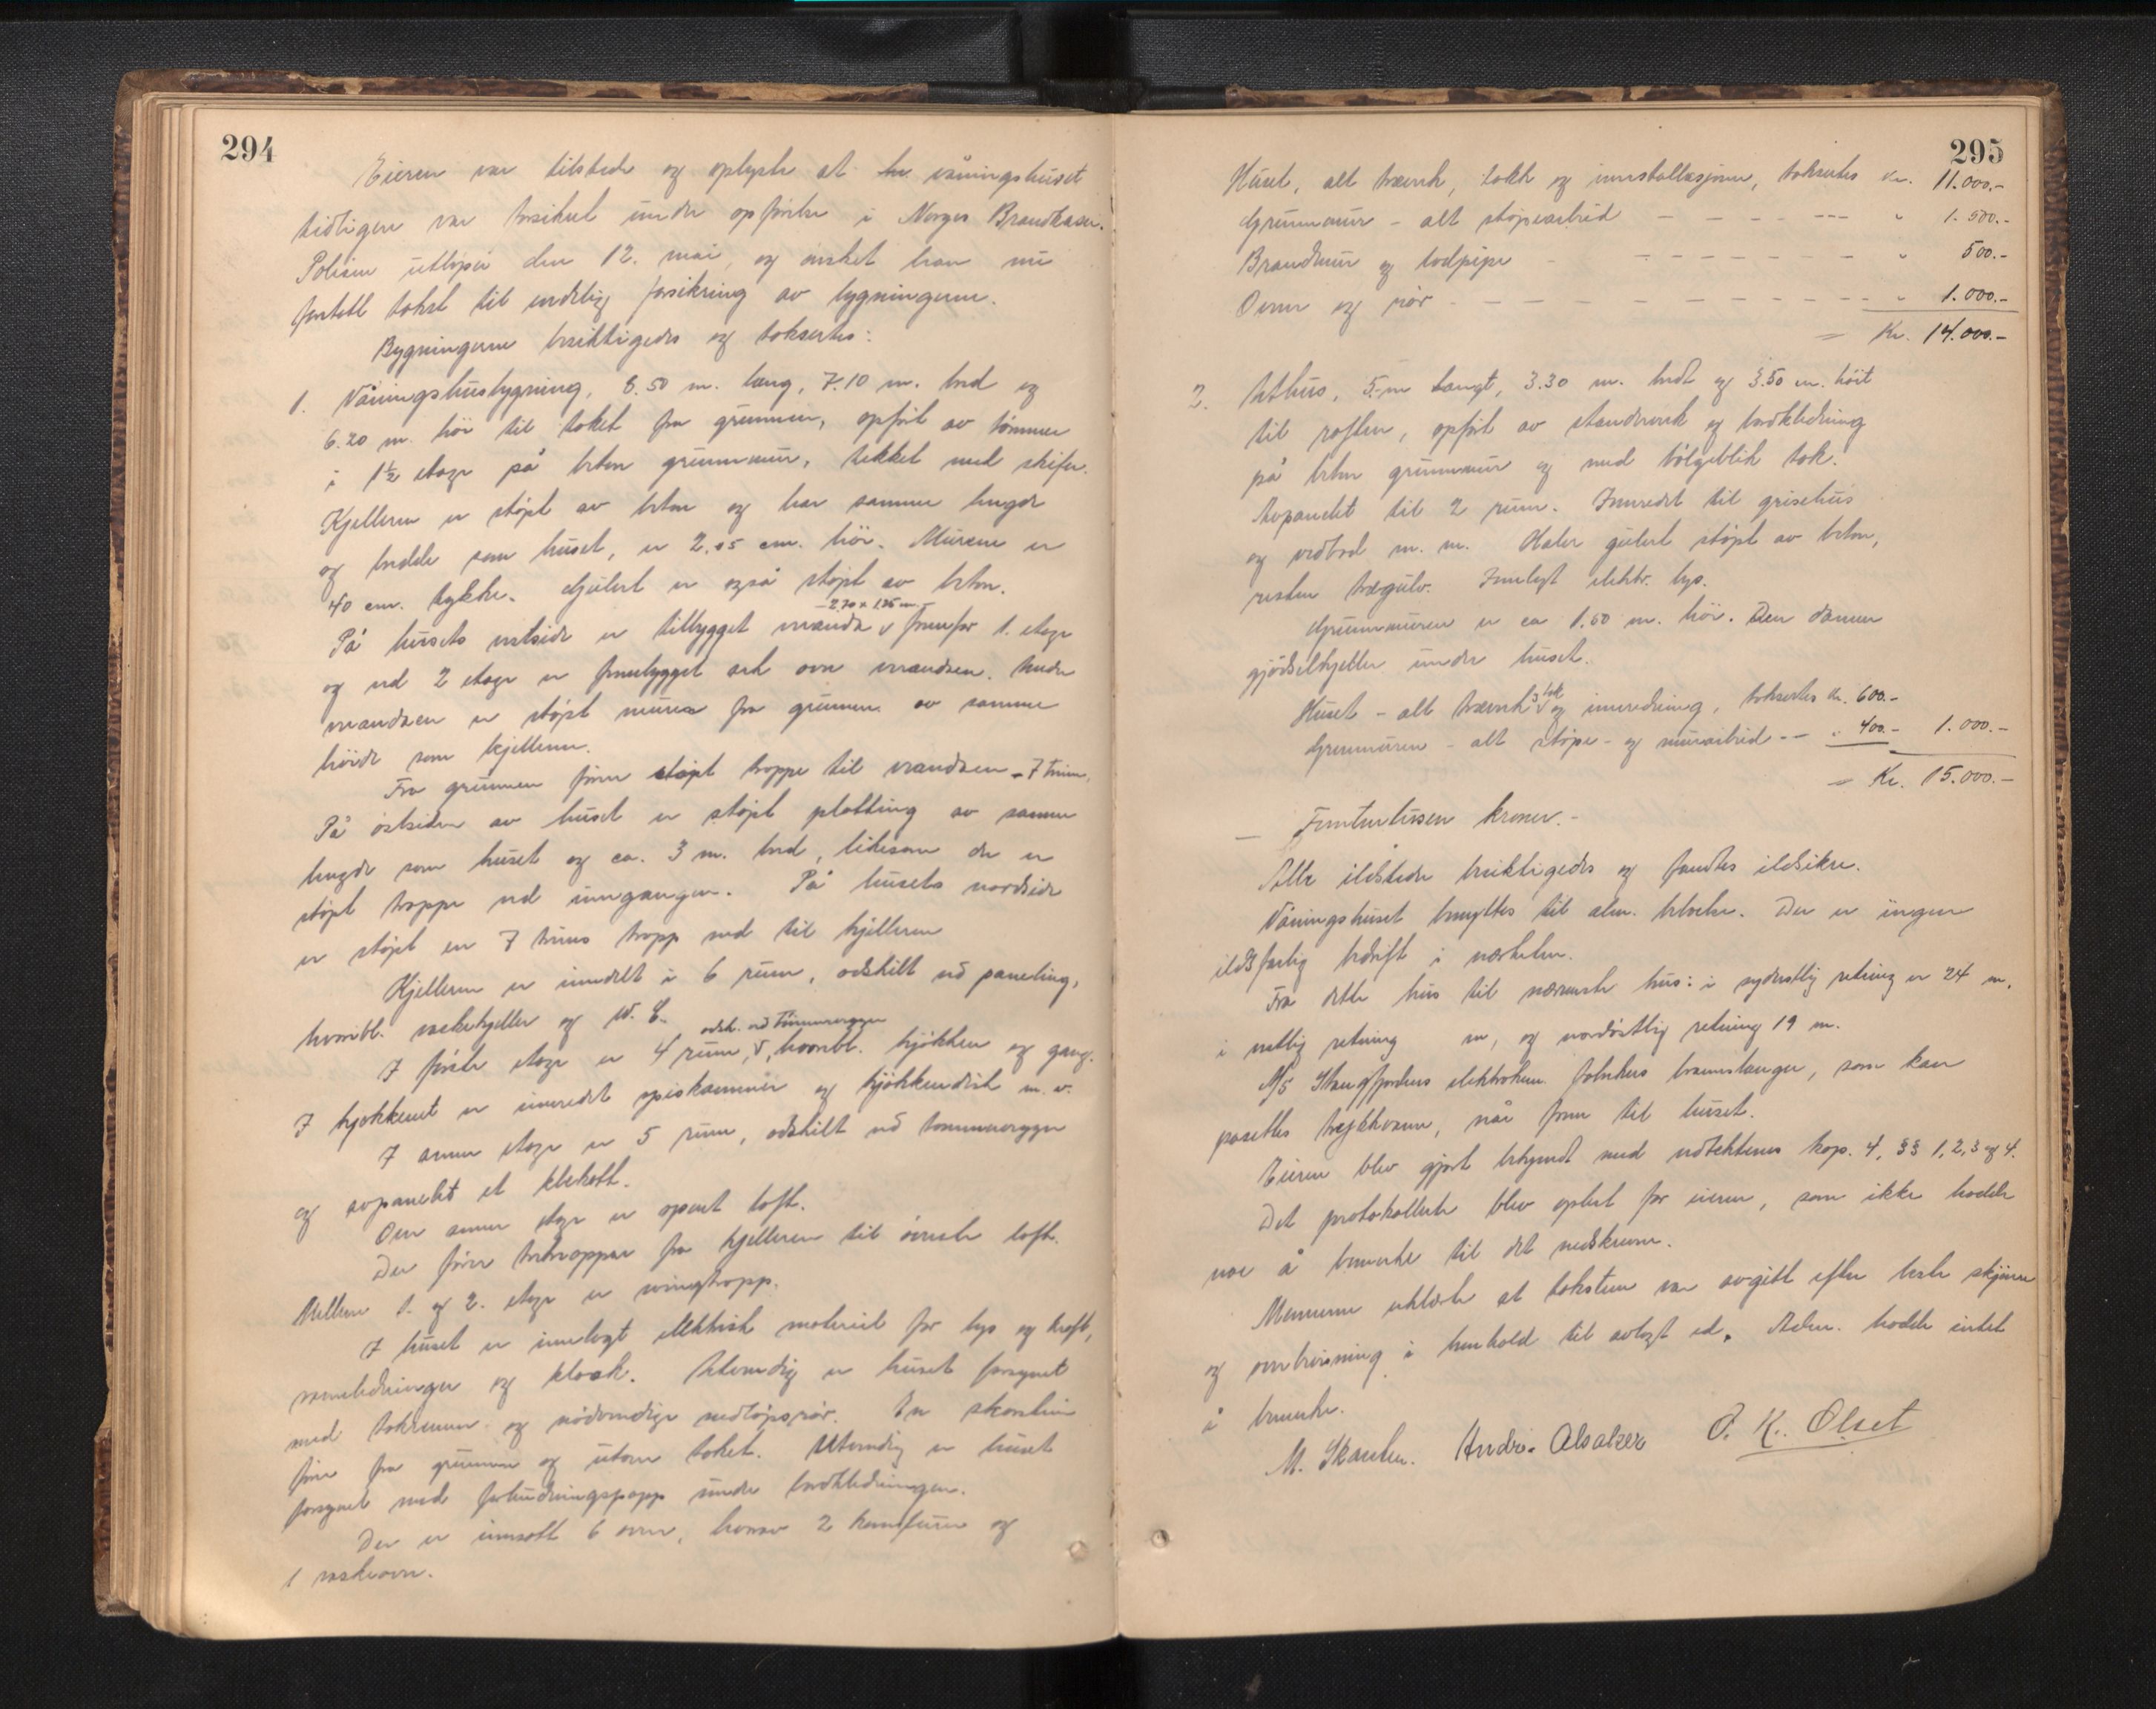 294
Eieren var tilstede og oplyste at våningshuset
tidligere var forsikret under opførelse i Norges Brandkasse.
Polisen utløper den 12. mai, og ønsket han nu
foretatt takst til endelig forsikring av bygningerne.
Bygningerne besiktigedes og taksertes:
1. Våningshusbygning, 8.50 m. lang, 7.10 m. bred og
6.20 m. høi til taket fra grunnen, opført av tømmer
i 1½ etage på beton grunnmur, tekket med skifer.
Kjelleren er støpt av beton og har samme lengde
og bredde som huset, er 2.05 cm. høi. Murene er
40 cm. tykke. Gulvet er også støpt av beton.
På husets vestside er tilbygget veranda v foranfor 1. etage
- 2.70 x 1.25 m. -
og ved 2 etage er frembygget ark over verandaen. Under
verandaen er støpt murer fra grunnen av samme
høide som kjelleren.
Fra grunnen fører støpt trappe til verandaen - 7 trinn.
På østsiden av huset er støpt platting av samme
lengde som huset og ca. 3 m. bred, likesom der er
støpt trappe ved inngangen. På husets nordside
er støpt en 7 trins trapp ned til kjelleren
Kjelleren er inndelt i 6 rum, adskilt ved paneling,
hvoribl. vaskekjeller og W. C.
I første etage er 4 rum, v, hvoribl. kjøkken og gang.
adsk. ved tømmervegger
I kjøkkenet er innredet spiskammer og kjøkkendisk m. v.
I annen etage er 5 rum, adskilt ved tømmervegger
og avpanelet et klekott.
Over annen etage er åpent loft.
Der fører tretrapper fra kjelleren til øverste loft.
Mellem 1. og 2. etage er svingtrapp.
I huset er innlagt elektrisk materiel for lys og kraft,
vannledninger og kloak. Utvendig er huset forsynet
med takrenner og nødvendige nedløpsrør. En skorstein
fører fra grunnen og utover taket. Utvendig er huset
forsynet med forhudningspapp under bordkledningen.
Der er innsatt 6 ovner, hvorav 2 komfurer og
1 vaskeovn.
295
Huset, alt treverk, takk og innstallasjoner, taksertes kr. 11.000.-
Grunnmur - alt støpearbeid - - - - - - - " 1.500.-
Brandmur og todpipe - - - - - - - - " 500.-
Ovner og rør - - - - - - - - - - - - " 1.000.-
= Kr. 14.000.-
2. Uthus, 5 m langt, 3.30 m. bredt og 3.50 m. høit
til raften, opført av standverk og bordkledning
på beton grunnmur og med bølgeblik tak.
Avpanelet til 2 rum. Innredet til grisehus
og vedbod m. m. Halve gulvet støpt av beton,
resten tregulv. Innlagt elektr. lys.
Grunnmuren er ca 1.50 m. høi. Den danner
gjødselkjeller under huset.
Huset - alt treverk, tak og innredning, taksertes kr. 600.-
Grunnmuren - alt støpe- og murarbeid - - " 400.- 1.000.-
= Kr. 15.000.-
- Femtentusen kroner. -
Alle ildsteder besiktigedes og fandtes ildsikre.
Våningshuset benyttes til alm. beboelse. Der er ingen
ildsfarlig bedrift i nærheten.
Fra dette hus til nærmeste hus: i sydvestlig retning er 24 m.
i vestlig retning m, og nordøstlig retning 19 m.
A/S Stangfjordens elektrokem. fabrikers brannslanger, som kan
påsettes trykkvann, når frem til huset.
Eieren blev gjort bekjendt med vedtektenes kap. 4, §§ 1, 2, 3 og 4.
Det protokollerte blev oplest for eieren, som ikke hadde
noe å bemerke til det nedskrevne.
Mennene erklærte at taksten var avgitt efter beste skjønn
og overbevisning i henhold til avlagt ed. hadde intet
å bemerke.
M. Skarsten. O. K. Olset